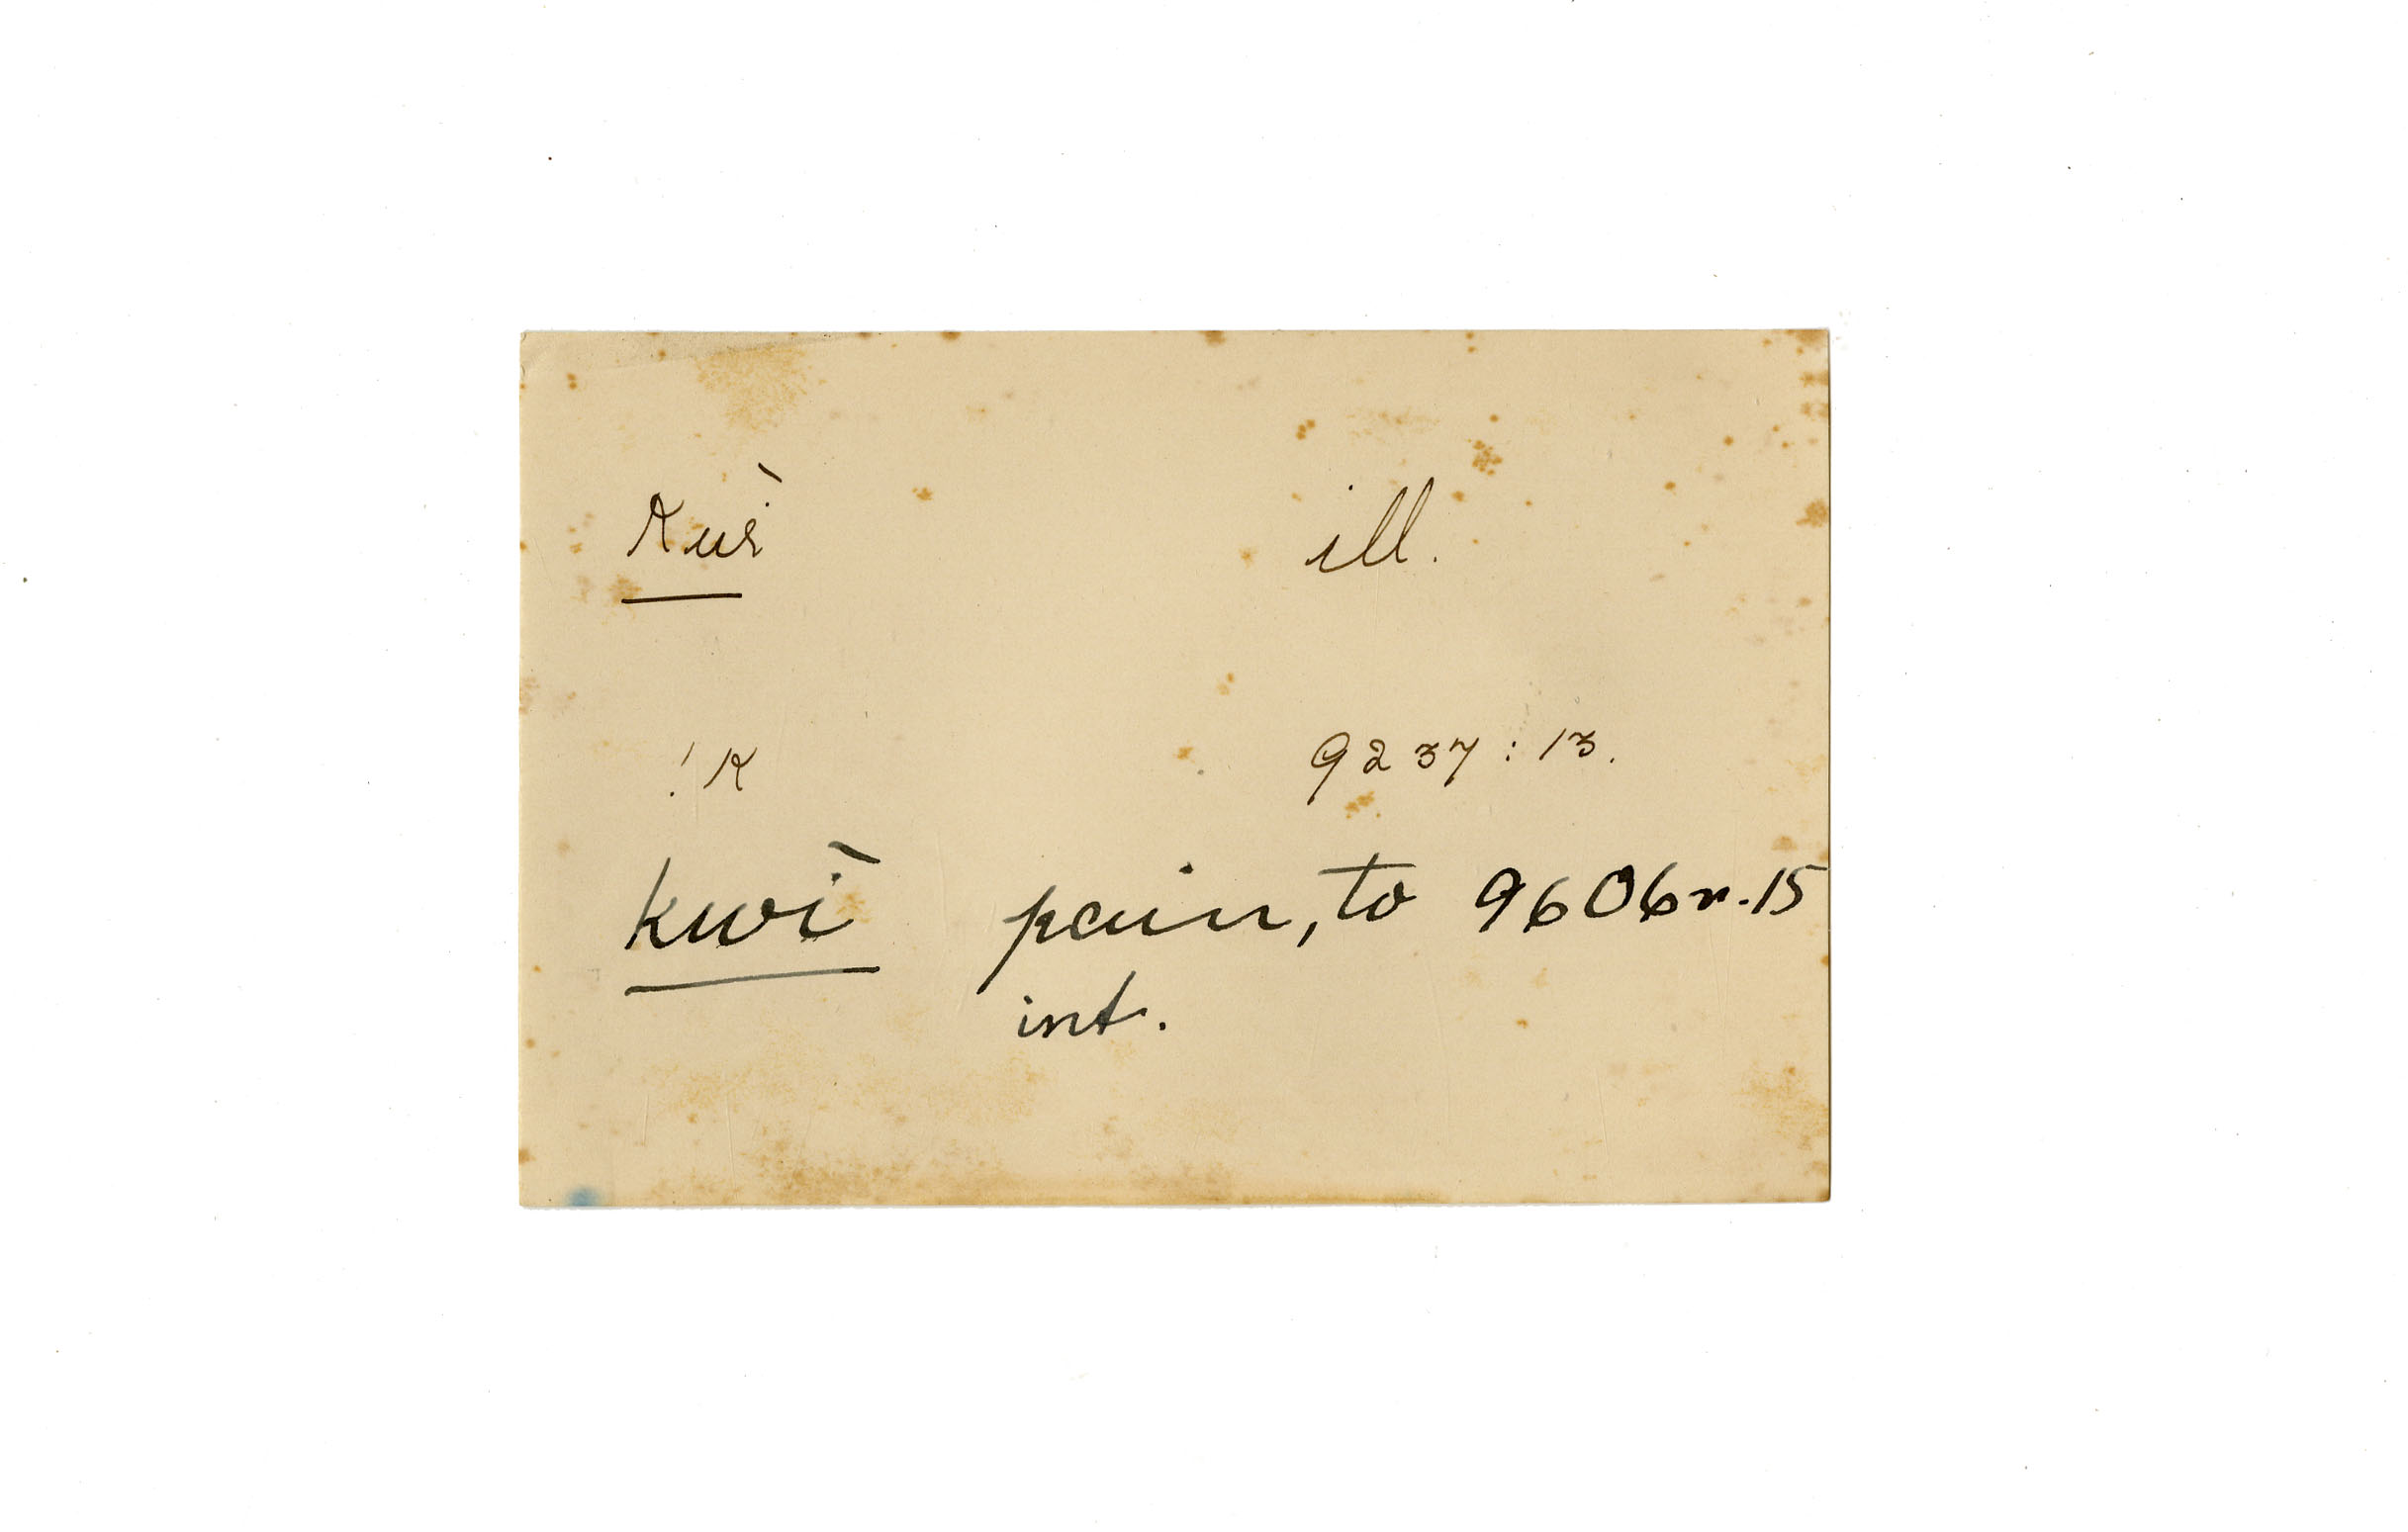 kwì ill.
!K 9237:13.
kwì pain, to 9606r.15
int.